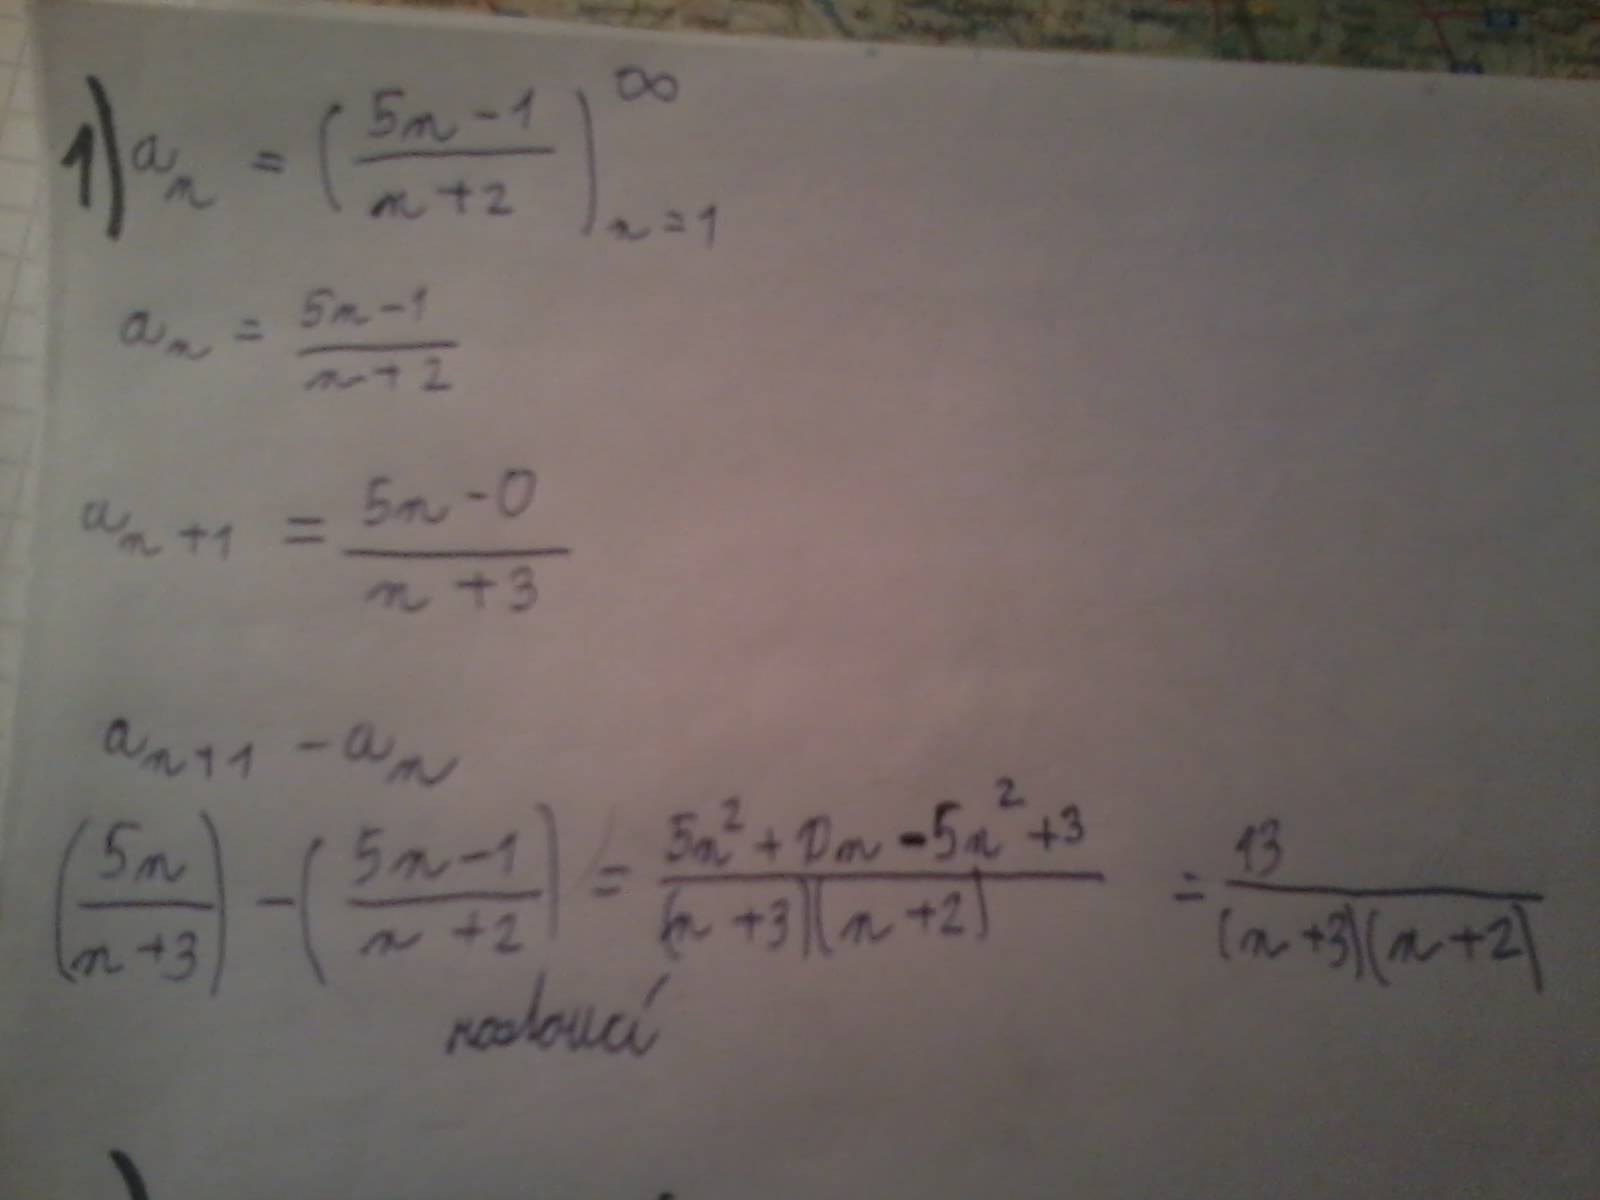 1) a_n = ( (5n-1)/(n+2) )_{n=1}^∞
a_n = (5n-1)/(n+2)
a_{n+1} = (5n-0)/(n+3)
a_{n+1} - a_n
(5n/(n+3)) - ((5n-1)/(n+2)) = (5n² + 10n - 5n² + 3)/((n+3)(n+2)) = 13/((n+3)(n+2))
rostoucí